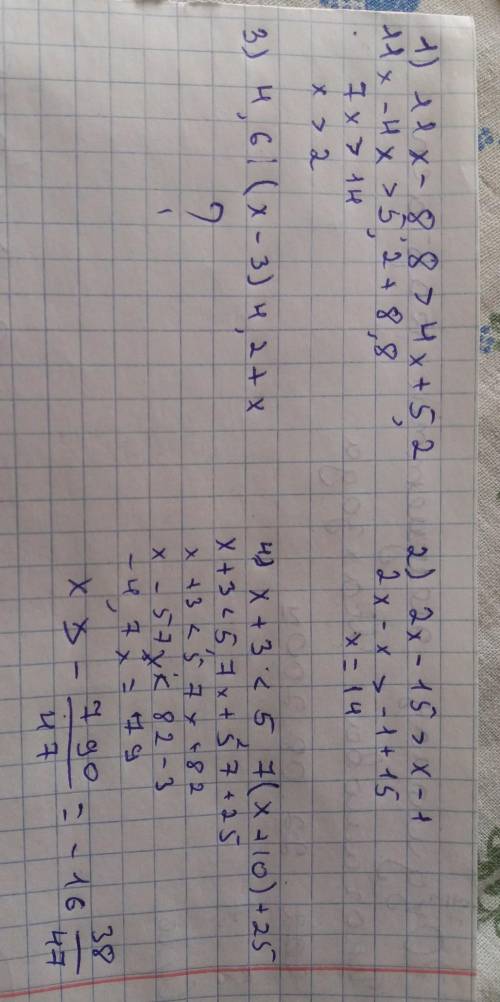 1) 11x - 8,8 > 4x + 5,2
11x - 4x > 5,2 + 8,8
7x > 14
x > 2
2) 2x - 15 > x - 1
2x - x > -1 + 15
x = 14
3) 4,6 | (x - 3) 4,2 + x
?
4) x + 3 < 5 7(x + 10) + 25
x + 3 < 5,7x + 57 + 25
x + 3 < 5 7x + 82
x - 57x < 82 - 3
-4,7x = 79
x > - 790/47 = -16 38/47